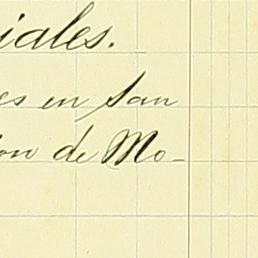 iales.
es en San
on de Mo-